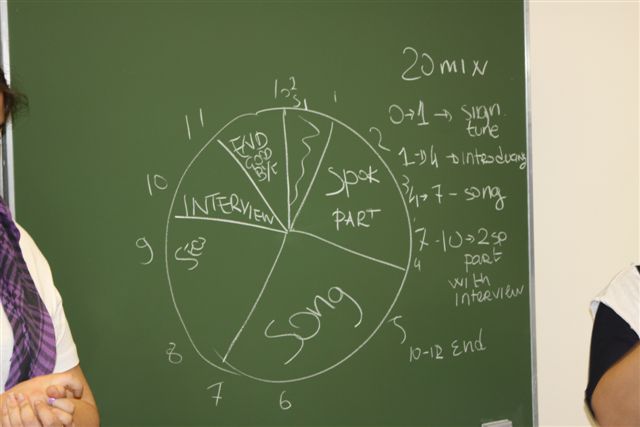 20 min
0→1 → sign.
tune
1→4 → introducing
4→7 - song
7-10→2 sp
part
with
interview
10-12 End
12
1
2
3
4
5
6
7
8
9
10
11
SPOK
PART
Song
INTERVIEW
END
GOOD
B/E